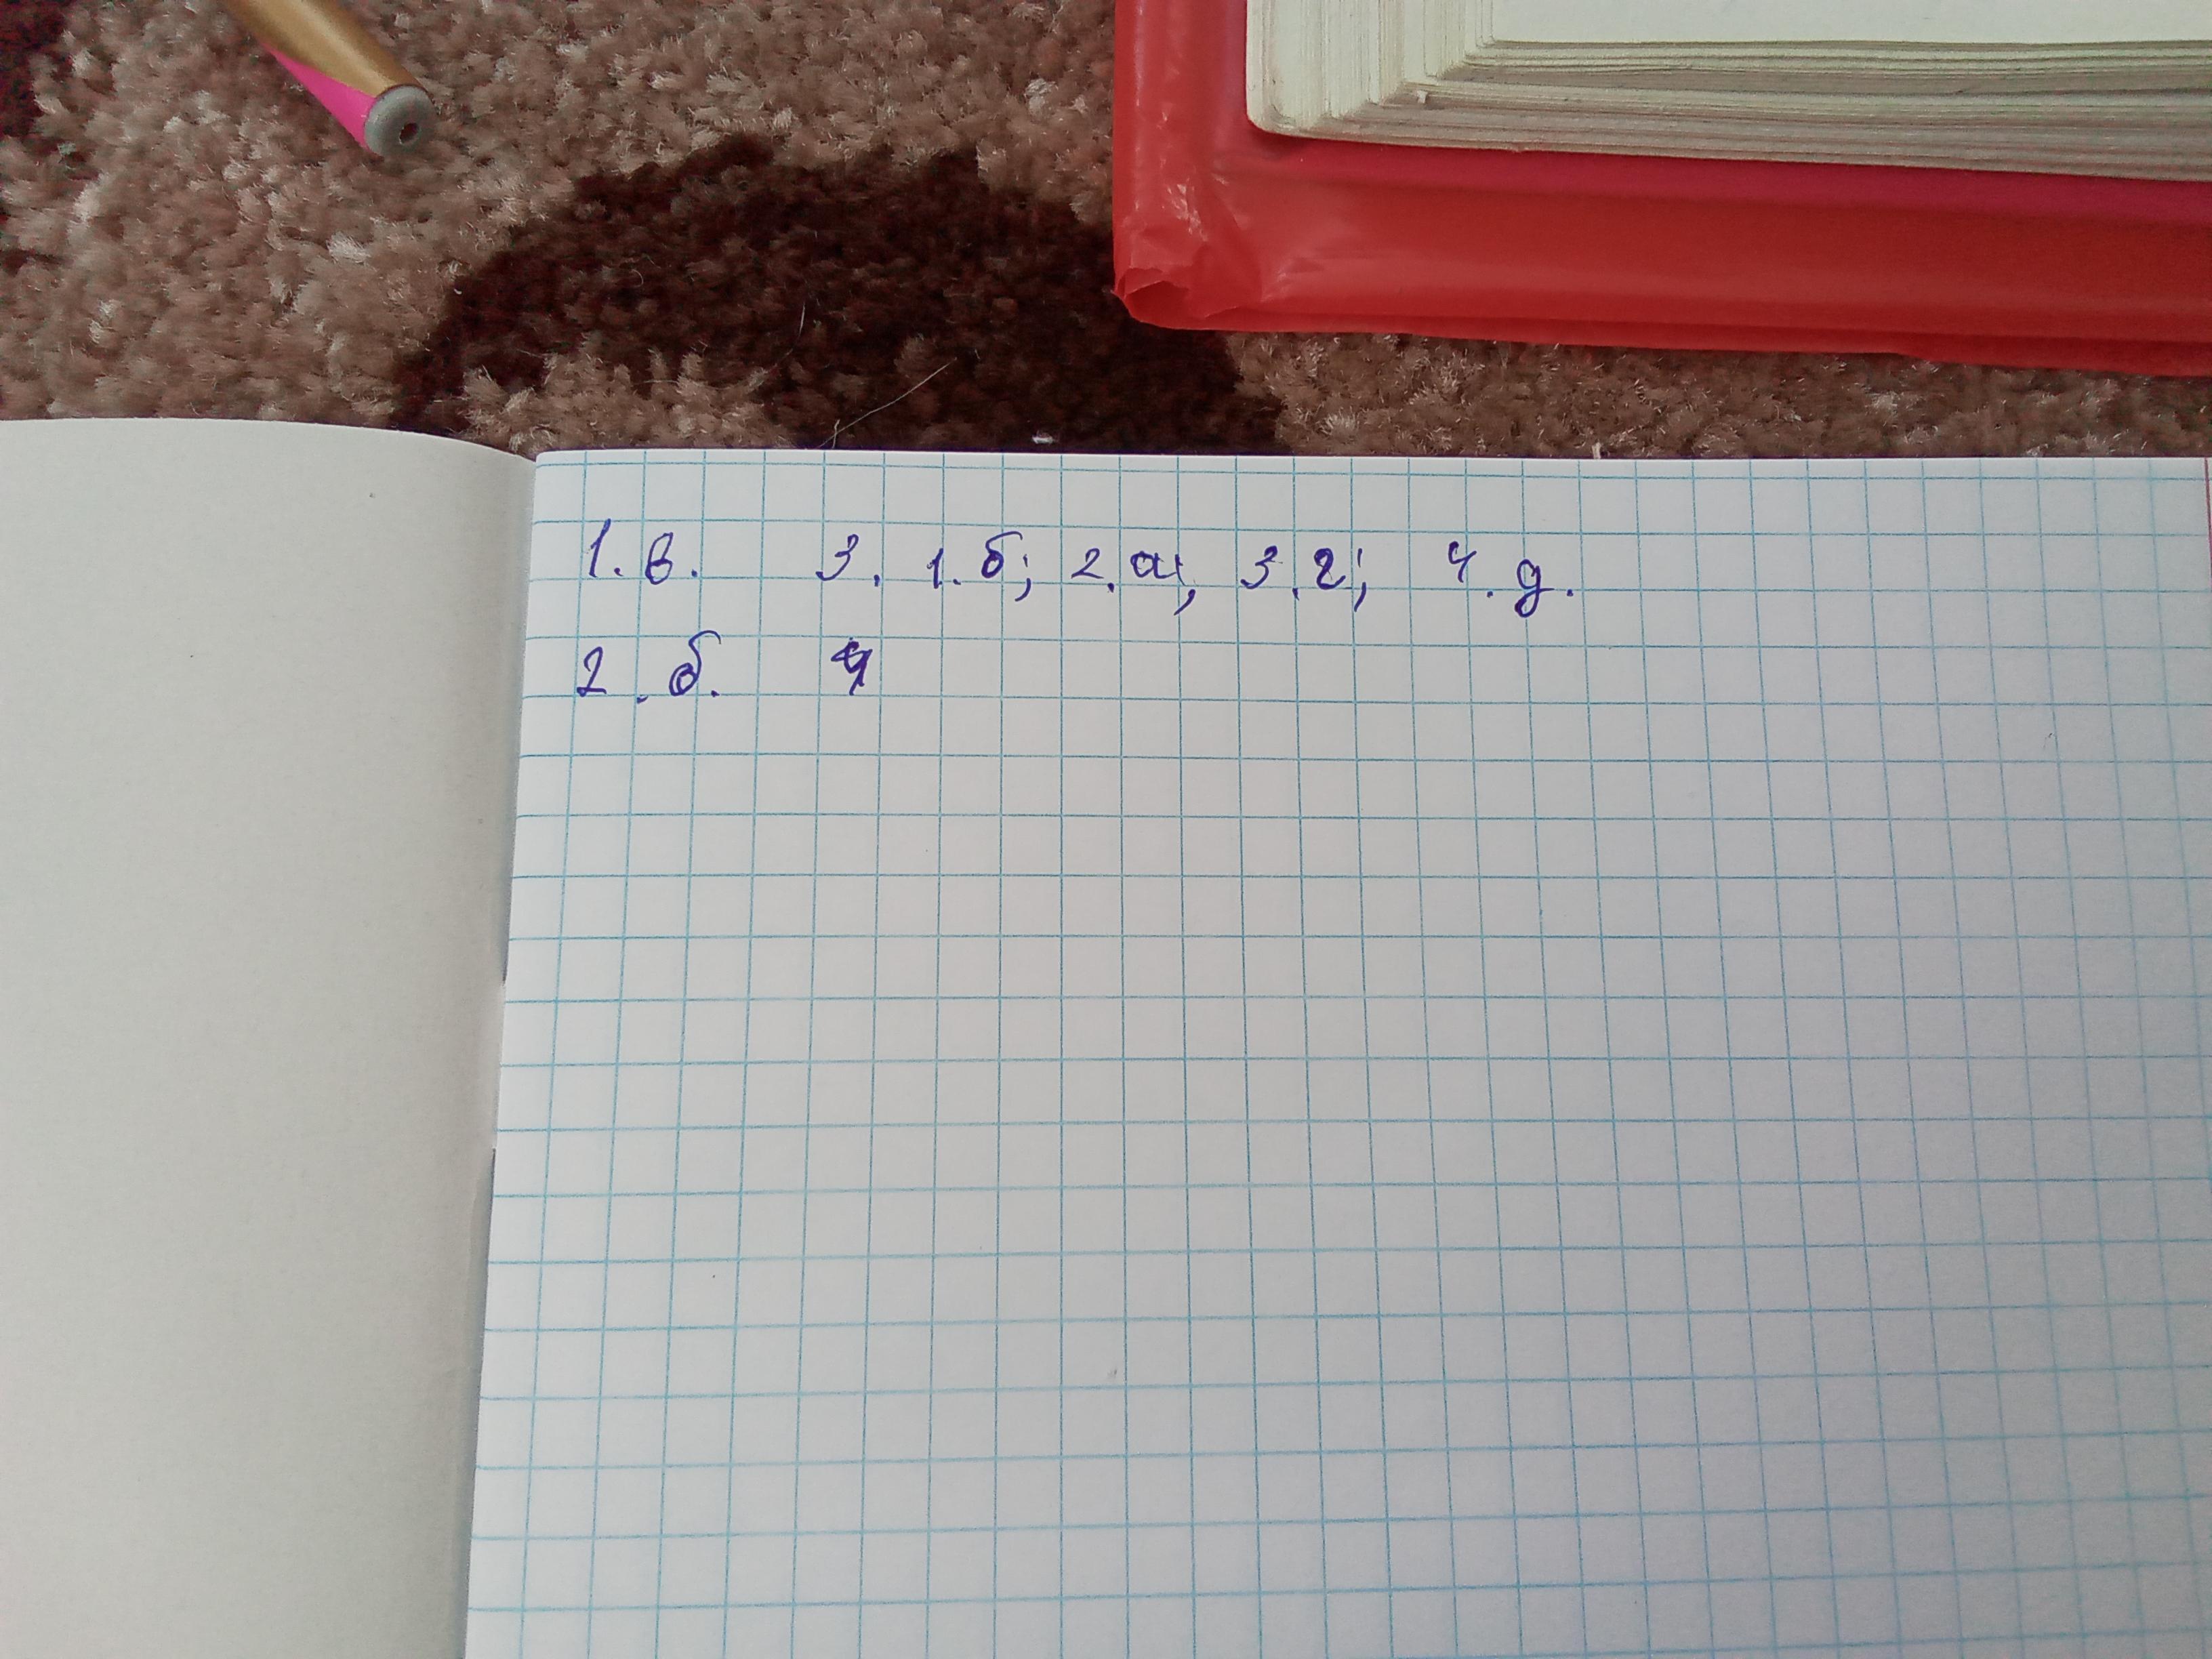 1. в. 3. 1. б; 2. а; 3. г; 4. д.
2. б. 4